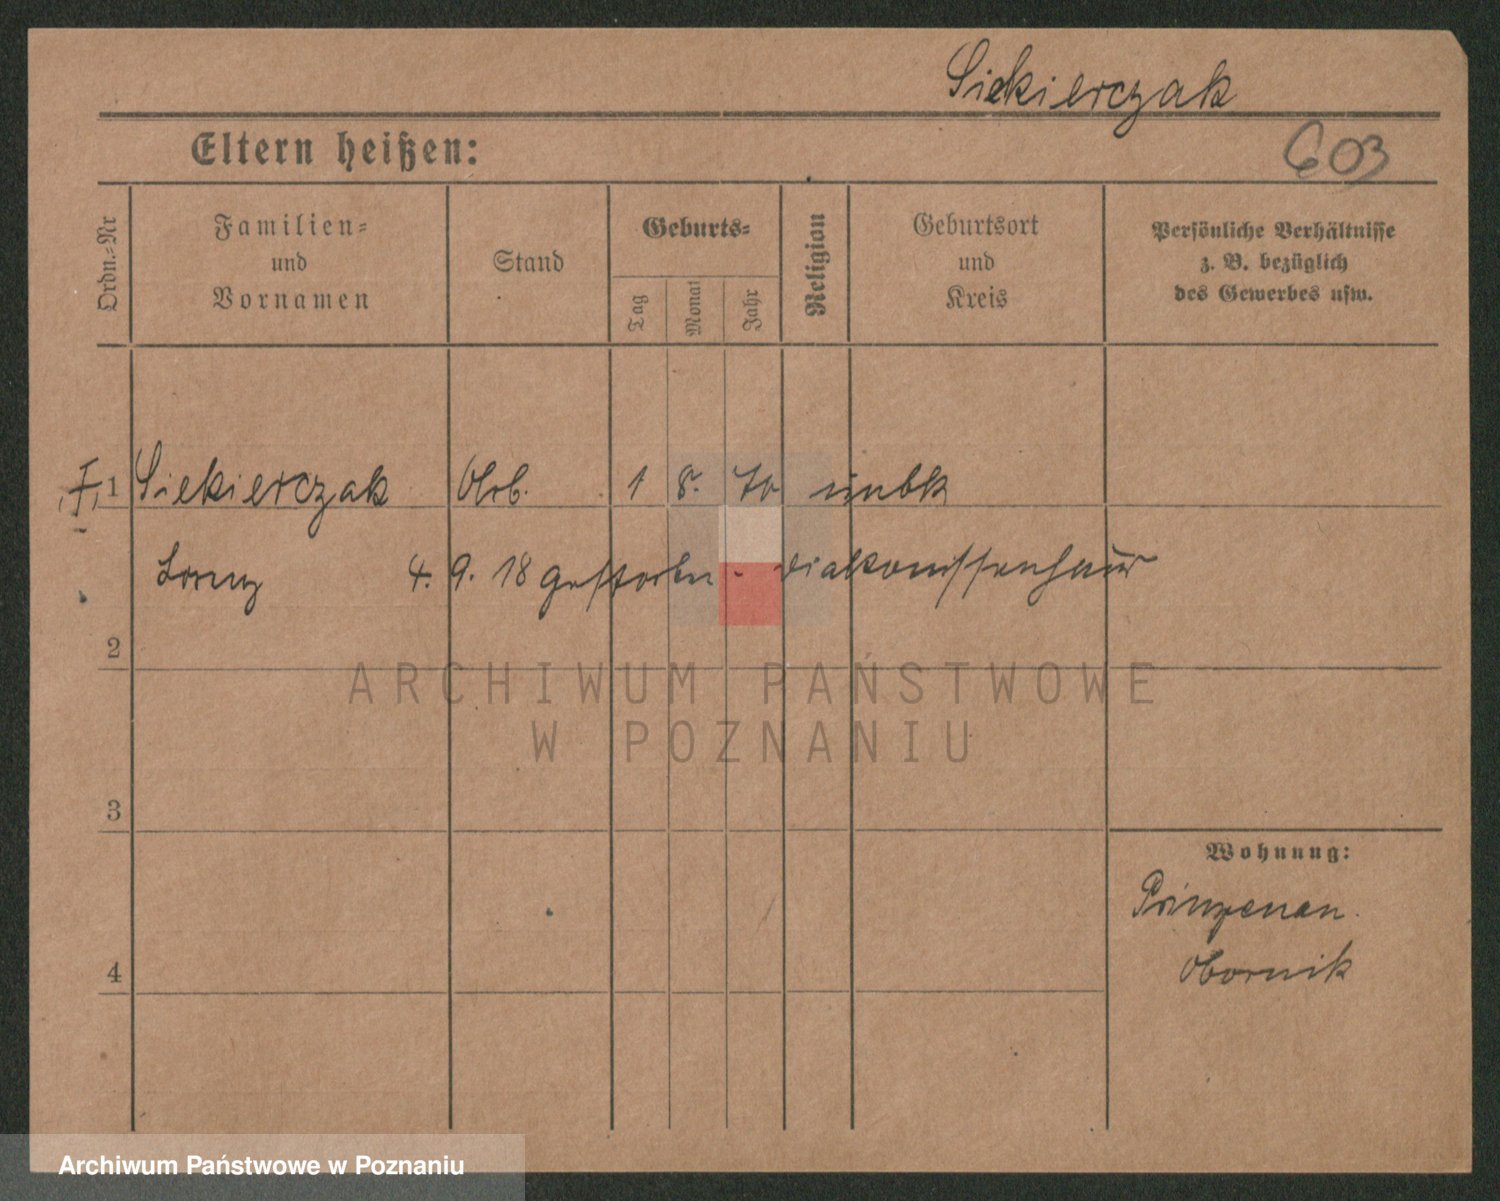 Siekierczak
Eltern heißen:
603
Ordn.=Nr
Familien=
und
Vornamen
Stand
Geburts=
Tag
Monat
Jahr
Religion
Geburtsort
und
Kreis
Persönliche Verhältnisse
z. B. bezüglich
des Gewerbes usw.
1 Siekierczak Arb. 1 8. 70 unbk
Lorenz 4. 9. 18 gestorben - Diakonissenhaus
2
3
4
Wohnung:
Prinzenau
Obornik
ARCHIWUM PAŃSTWOWE
W POZNANIU
Archiwum Państwowe w Poznaniu